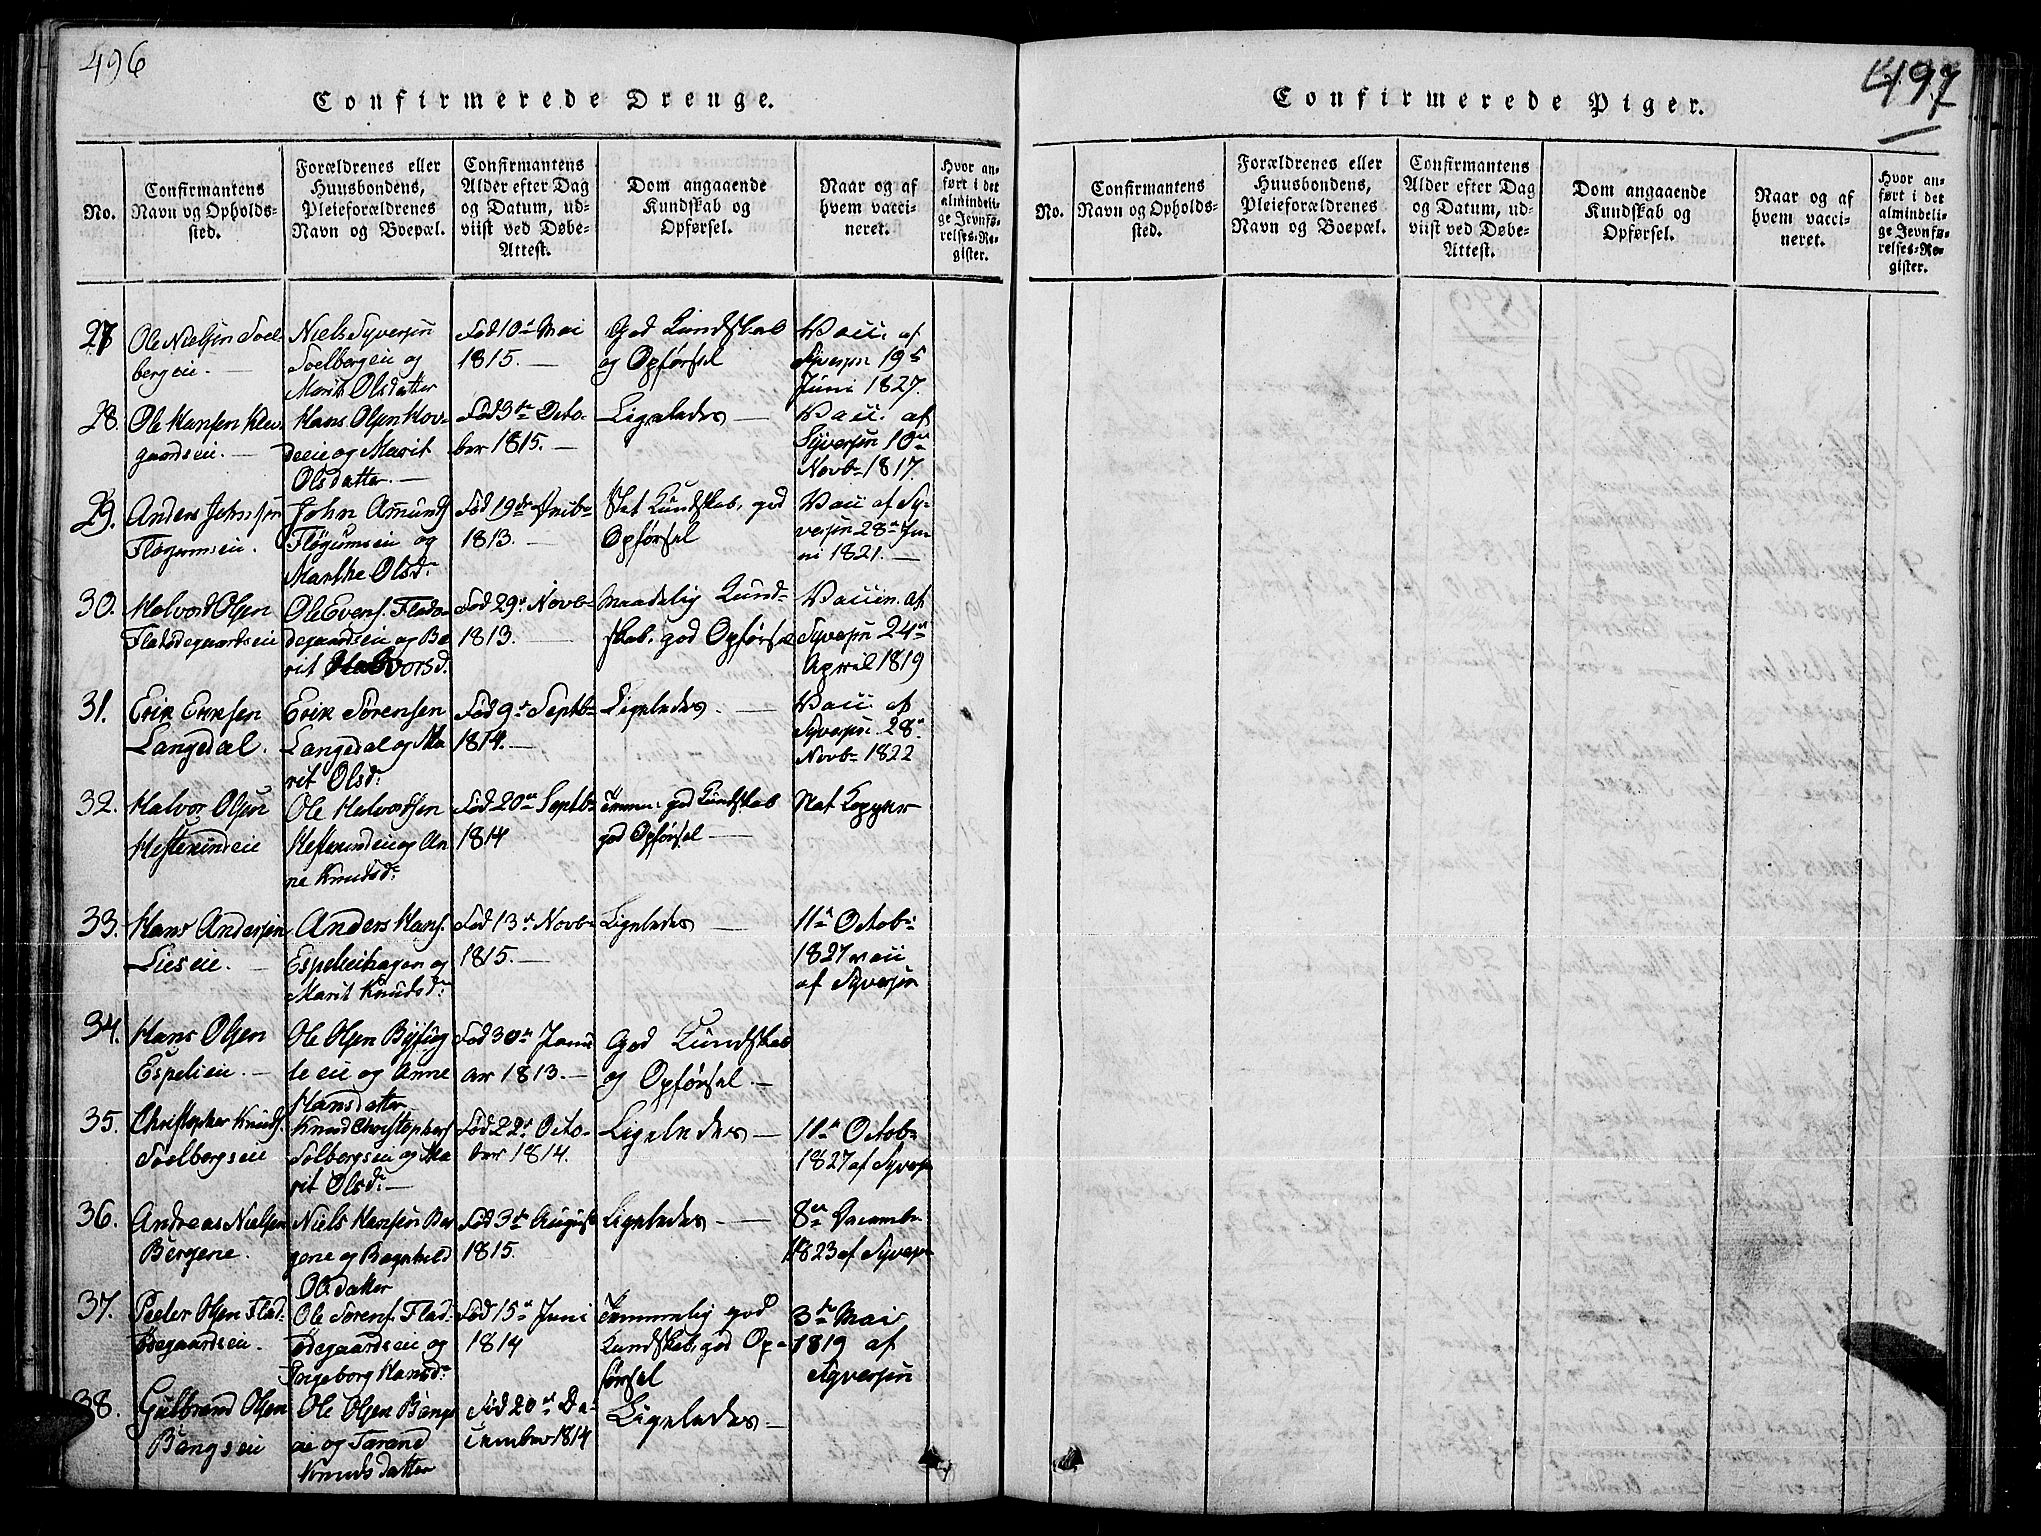 496
Confirmerede Drenge.
No.
Confirmantens
Navn og Opholds-
sted.
Forældrenes eller
Huusbondens,
Pleieforældrenes
Navn og Boepæl.
Confirmantens
Alder efter Dag
og Datum, ud-
viist ved Døbe-
Attest.
Dom angaaende
Kundskab og
Opførsel.
Naar og af
hvem vacci-
neret.
Hvor an-
ført i det
almindeli-
ge Jevnfø-
relses-Re-
gister.
27
Ole Nielsen Soel-
bergeie.
Niels Syversen
Soelbergeie og
Marit Olsdatter
Fød 10de Mai
1815.
God Kundskab
og Opførsel
Vacc. af
Syversen 19de
Juni 1827.
28.
Ole Hansen
gaardseie.
Hans Olsen
deeie og Marit
Olsdatter.
Fød 3de Octo-
ber 1815.
Ligeledes
Vacc. af
Syversen 10de
Novb. 1817.
29.
Anders Johnsen
John Amunds
og
Marthe Olsd.
Fød 19de
1813.
Kundskab, god
Opførsel
Vacc af Sy-
versen 28de Ju-
ni 1821.
30.
Halvord Olsen
Fladødegaardseie
Ole Evens. Fladø-
degaardseie og Be-
rit Halvorsd.
Fød 29de Novb.
1813.
Maadelig Kund-
skab, god Opførsel
Vaccn. af
Syversen 24de
April 1819
31.
Erik Eriksen
Langedal.
Erik Sørensen
Langedal og Ma-
rit Olsd.
Fød 9de Septb.
1814.
Ligeledes.
Vacc af
Syversen 28de
Novb. 1822
32.
Halvor Olsen
Hesteruneie
Ole Halvordsen
Hesteruneie og An-
ne Knudsd.
Fød 20de Septb.
1814
Temm. god Kundskab
god Opførsel
Nat. Kopper
33.
Hans Andersen
Lieseie.
Anders Hans.
Espelieihagen og
Marit Knudsd.
Fød 13de Novb.
1815.
Ligeledes
11de Octob.
1827 vacc
af Syversen
34.
Hans Olsen
Espelieie.
Ole Olsen
eie og Anne
Hansdatter
Fød 30de Janu-
ar 1813.
God Kundskab
og Opførsel.
35.
Christopher Knuds.
Soelbergseie
Knud Christophers.
Solbergseie og Ma-
rit Olsd.
Fød 22de Octo-
ber 1814.
Ligeledes
11de Octob.
1827 af Syversen
36.
Andreas Nielsen
Bergene.
Niels Hansen Ber-
gene og Ragnhild
Olsdatter
Fød 3de August
1815.
Ligeledes
8de Decembr.
1823 af Syversen
37.
Peder Olsen Flad-
ødegaardseie.
Ole Sørens. Flad-
ødegaardseie og
Ingeborg Hansd.
Fød 15de Juni
1814
Temmelig god
Kundskab, god Op-
førsel
3de Mai
1819 af
Syversen
38.
Gulbrand Olsen
Bangseie
Ole Olsen Bangs-
eie og Tarand
Knudsdatter
Fød 20de De-
cember 1814
Ligeledes
497
Confirmerede Piger.
No.
Confirmantens
Navn og Opholds-
sted.
Forældrenes eller
Huusbondens,
Pleieforældrenes
Navn og Boepæl.
Confirmantens
Alder efter Dag
og Datum, ud-
viist ved Døbe-
Attest.
Dom angaaende
Kundskab og
Opførsel.
Naar og af
hvem vacci-
neret.
Hvor an-
ført i det
almindeli-
ge Jevnfø-
relses-Re-
gister.